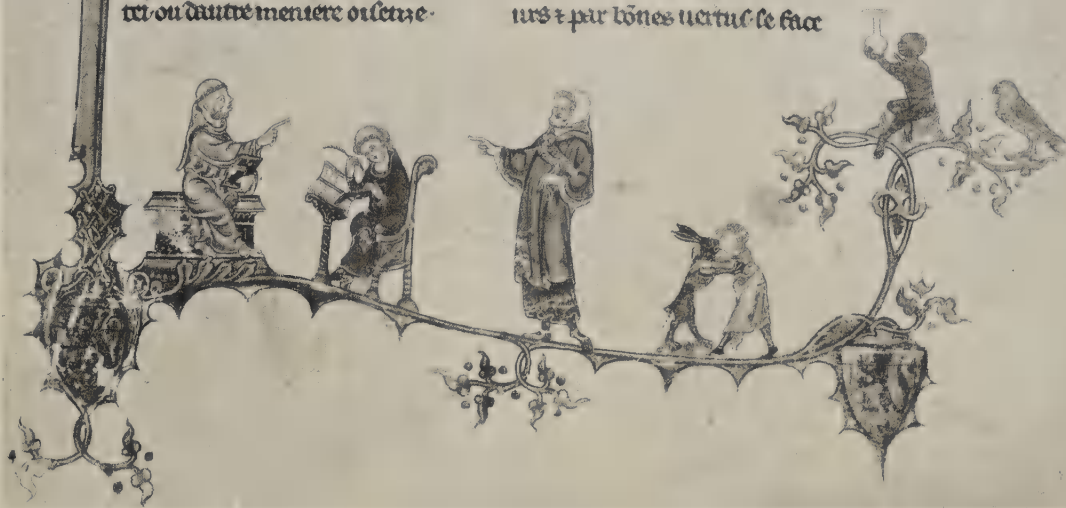 ou dautre meniere oisenze·
urs ⁊ par bōnes uertus· se face